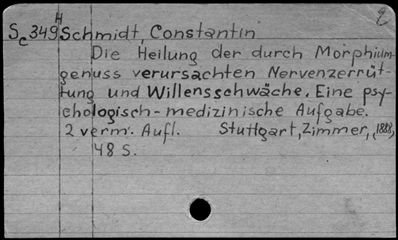 H
Sc349 Schmidt, Constantin
Die Heilung der durch Morphium-
genuss verursachten Nervenzerrüt-
tung und Willensschwäche. Eine psy-
chologisch-medizinische Aufgabe.
2 verm. Aufl. Stuttgart, Zimmer, (1888)
48 S.